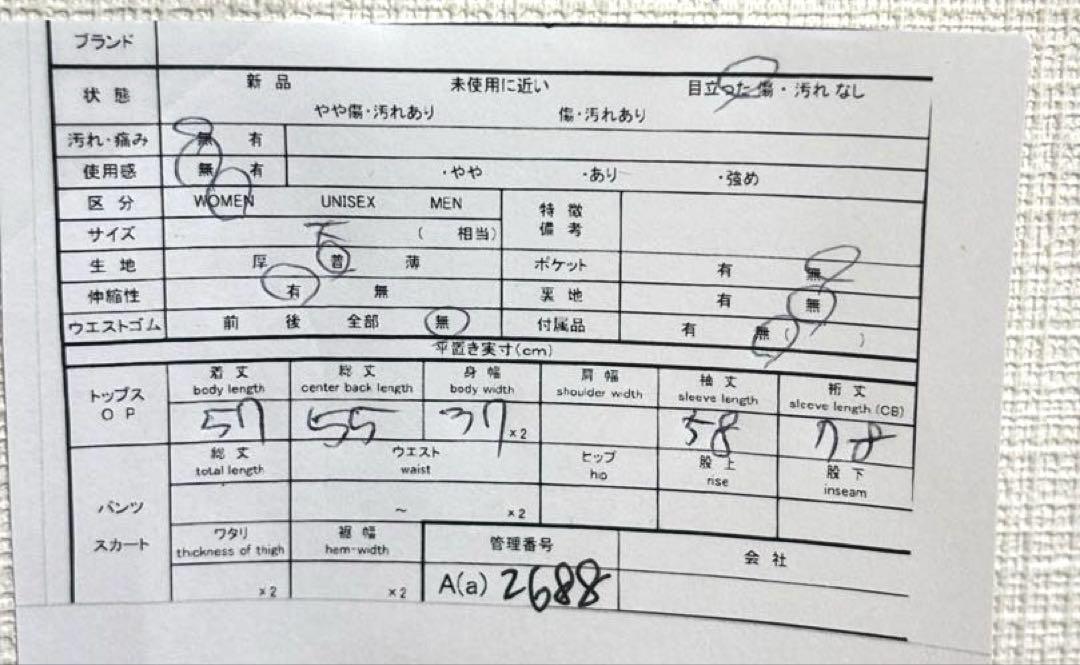 ブランド
状態 新品 未使用に近い 目立った傷・汚れなし
やや傷・汚れあり 傷・汚れあり
汚れ・痛み 無 有
使用感 無 有 ・やや ・あり ・強め
区分 WOMEN UNISEX MEN 特徴備考
サイズ ( 相当)
生地 厚 普 薄 ポケット 有 無
伸縮性 有 無 裏地 有 無
ウエストゴム 前 後 全部 無 付属品 有 無 ( )
平置き実寸(cm)
トップス OP 着丈 総丈 身幅 肩幅 袖丈 裄丈
body length center back length body width shoulder width sleeve length sleeve length (CB)
57 55 37 ×2 58 78
総丈 ウエスト ヒップ 股上 股下
total length waist hip rise inseam
パンツ ～ ×2
スカート ワタリ 裾幅 管理番号 会社
thickness of thigh hem-width
×2 ×2 A(a) 2688